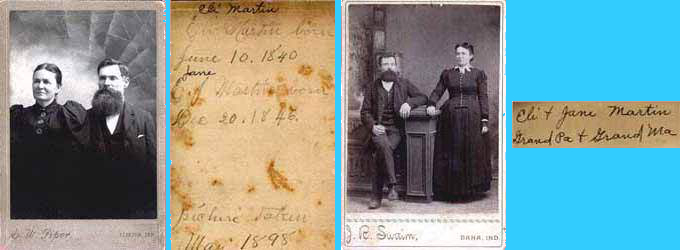 G. W. Piper,
Eli Martin
Eli Martin born
June 10. 1840
Jane
E. J. Martin born
Dec 20. 1846.
picture taken
1898
J. R. Swaim,
DANA, IND.
Eli + Jane Martin
Grand Pa + Grand Ma